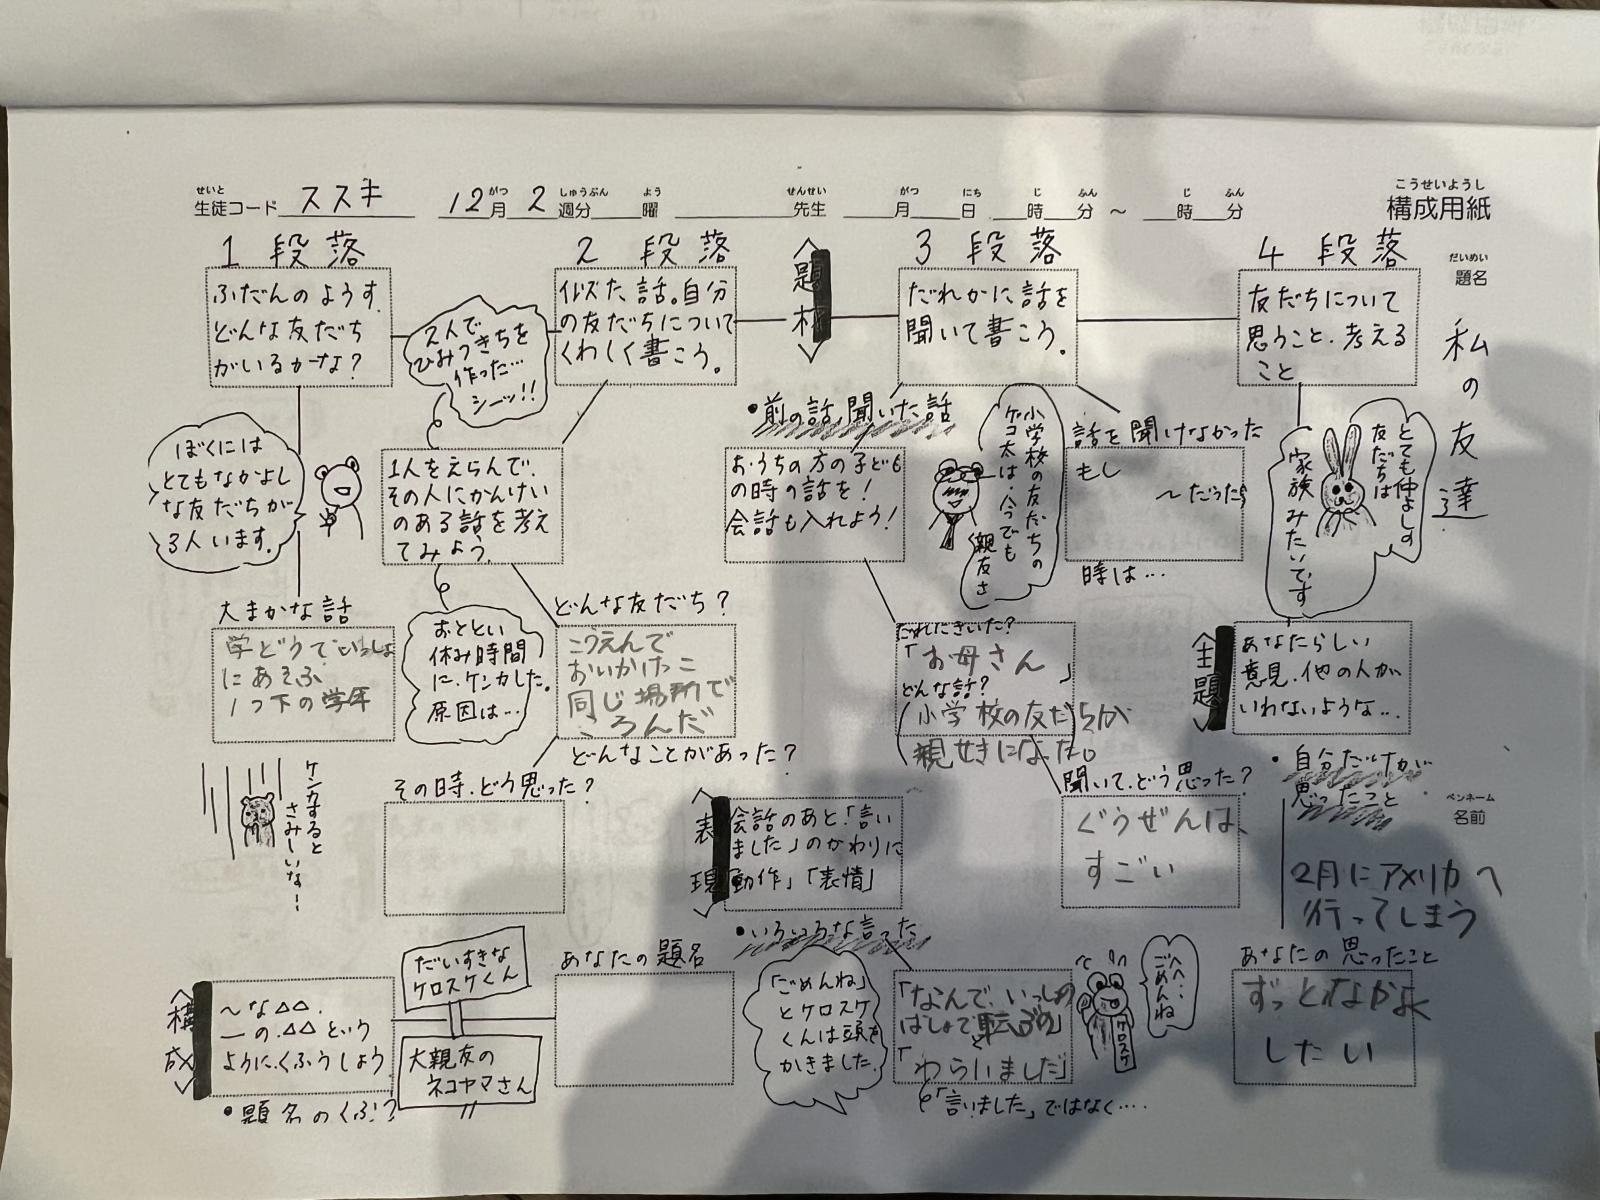 せいと
生徒コード ススキ
がつ しゅうぶん よう
12月 2週分 曜
せんせい がつ にち じ ふん じ ふん
先生 月 日 時 分 ～ 時 分
こうせいようし
構成用紙
だいめい
題名
私の友達
ペンネーム
名前
1 段落
ふだんのようす.
どんな友だち
がいるかな?
ぼくには
とてもなかよし
な友だちが
3人います。
大まかな話
学どうでいっしょ
にあそぶ
1つ下の学年
ケンカすると
さみしいな…
2人で
ひみつきちを
作った…
シーッ!!
2 段落
似た話。自分
の友だちについて
くわしく書こう。
1人をえらんで、
その人にかんけい
のある話を考え
てみよう。
おととい
休み時間
に、ケンカした。
原因は…
どんな友だち?
こうえんで
おいかけっこ
同じ場所で
ころんだ
どんなことがあった?
その時、どう思った?
〈題材〉
3 段落
だれかに話を
聞いて書こう。
・前の話、聞いた話
おうちの方の子ども
の時の話を!
会話も入れよう!
小学校の友だちの
ケコ太は、今でも
親友さ
話を聞けなかった
もし
～だったら
時は…
だれにきいた?
「お母さん」
どんな話?
(小学校の友だちが
親せきになった。)
聞いて、どう思った?
ぐうぜんは、
すごい
4 段落
友だちについて
思うこと、考える
こと
とても仲よしの
友だちは
家族みたいです
〈主題〉
あなたらしい
意見、他の人が
いわないような…
・自分だけが
思ったこと
2月にアメリカへ
行ってしまう
あなたの思ったこと
ずっとなかよく
したい
〈表現〉
会話のあと「言い
ました」のかわりに
「動作」「表情」
・いろいろな言った
「ごめんね」
とケロスケ
くんは頭を
かきました。
「なんで、いっしょの
ばしょで転ぶの」
「わらいました」
と「言いました」ではなく….
へへ…
ごめんね
ケロスケ
〈構成〉
～な△△.
―の.△△という
ように、くふうしよう
・題名のくふう
だいすきな
ケロスケくん
大親友の
ネコヤマさん
あなたの題名